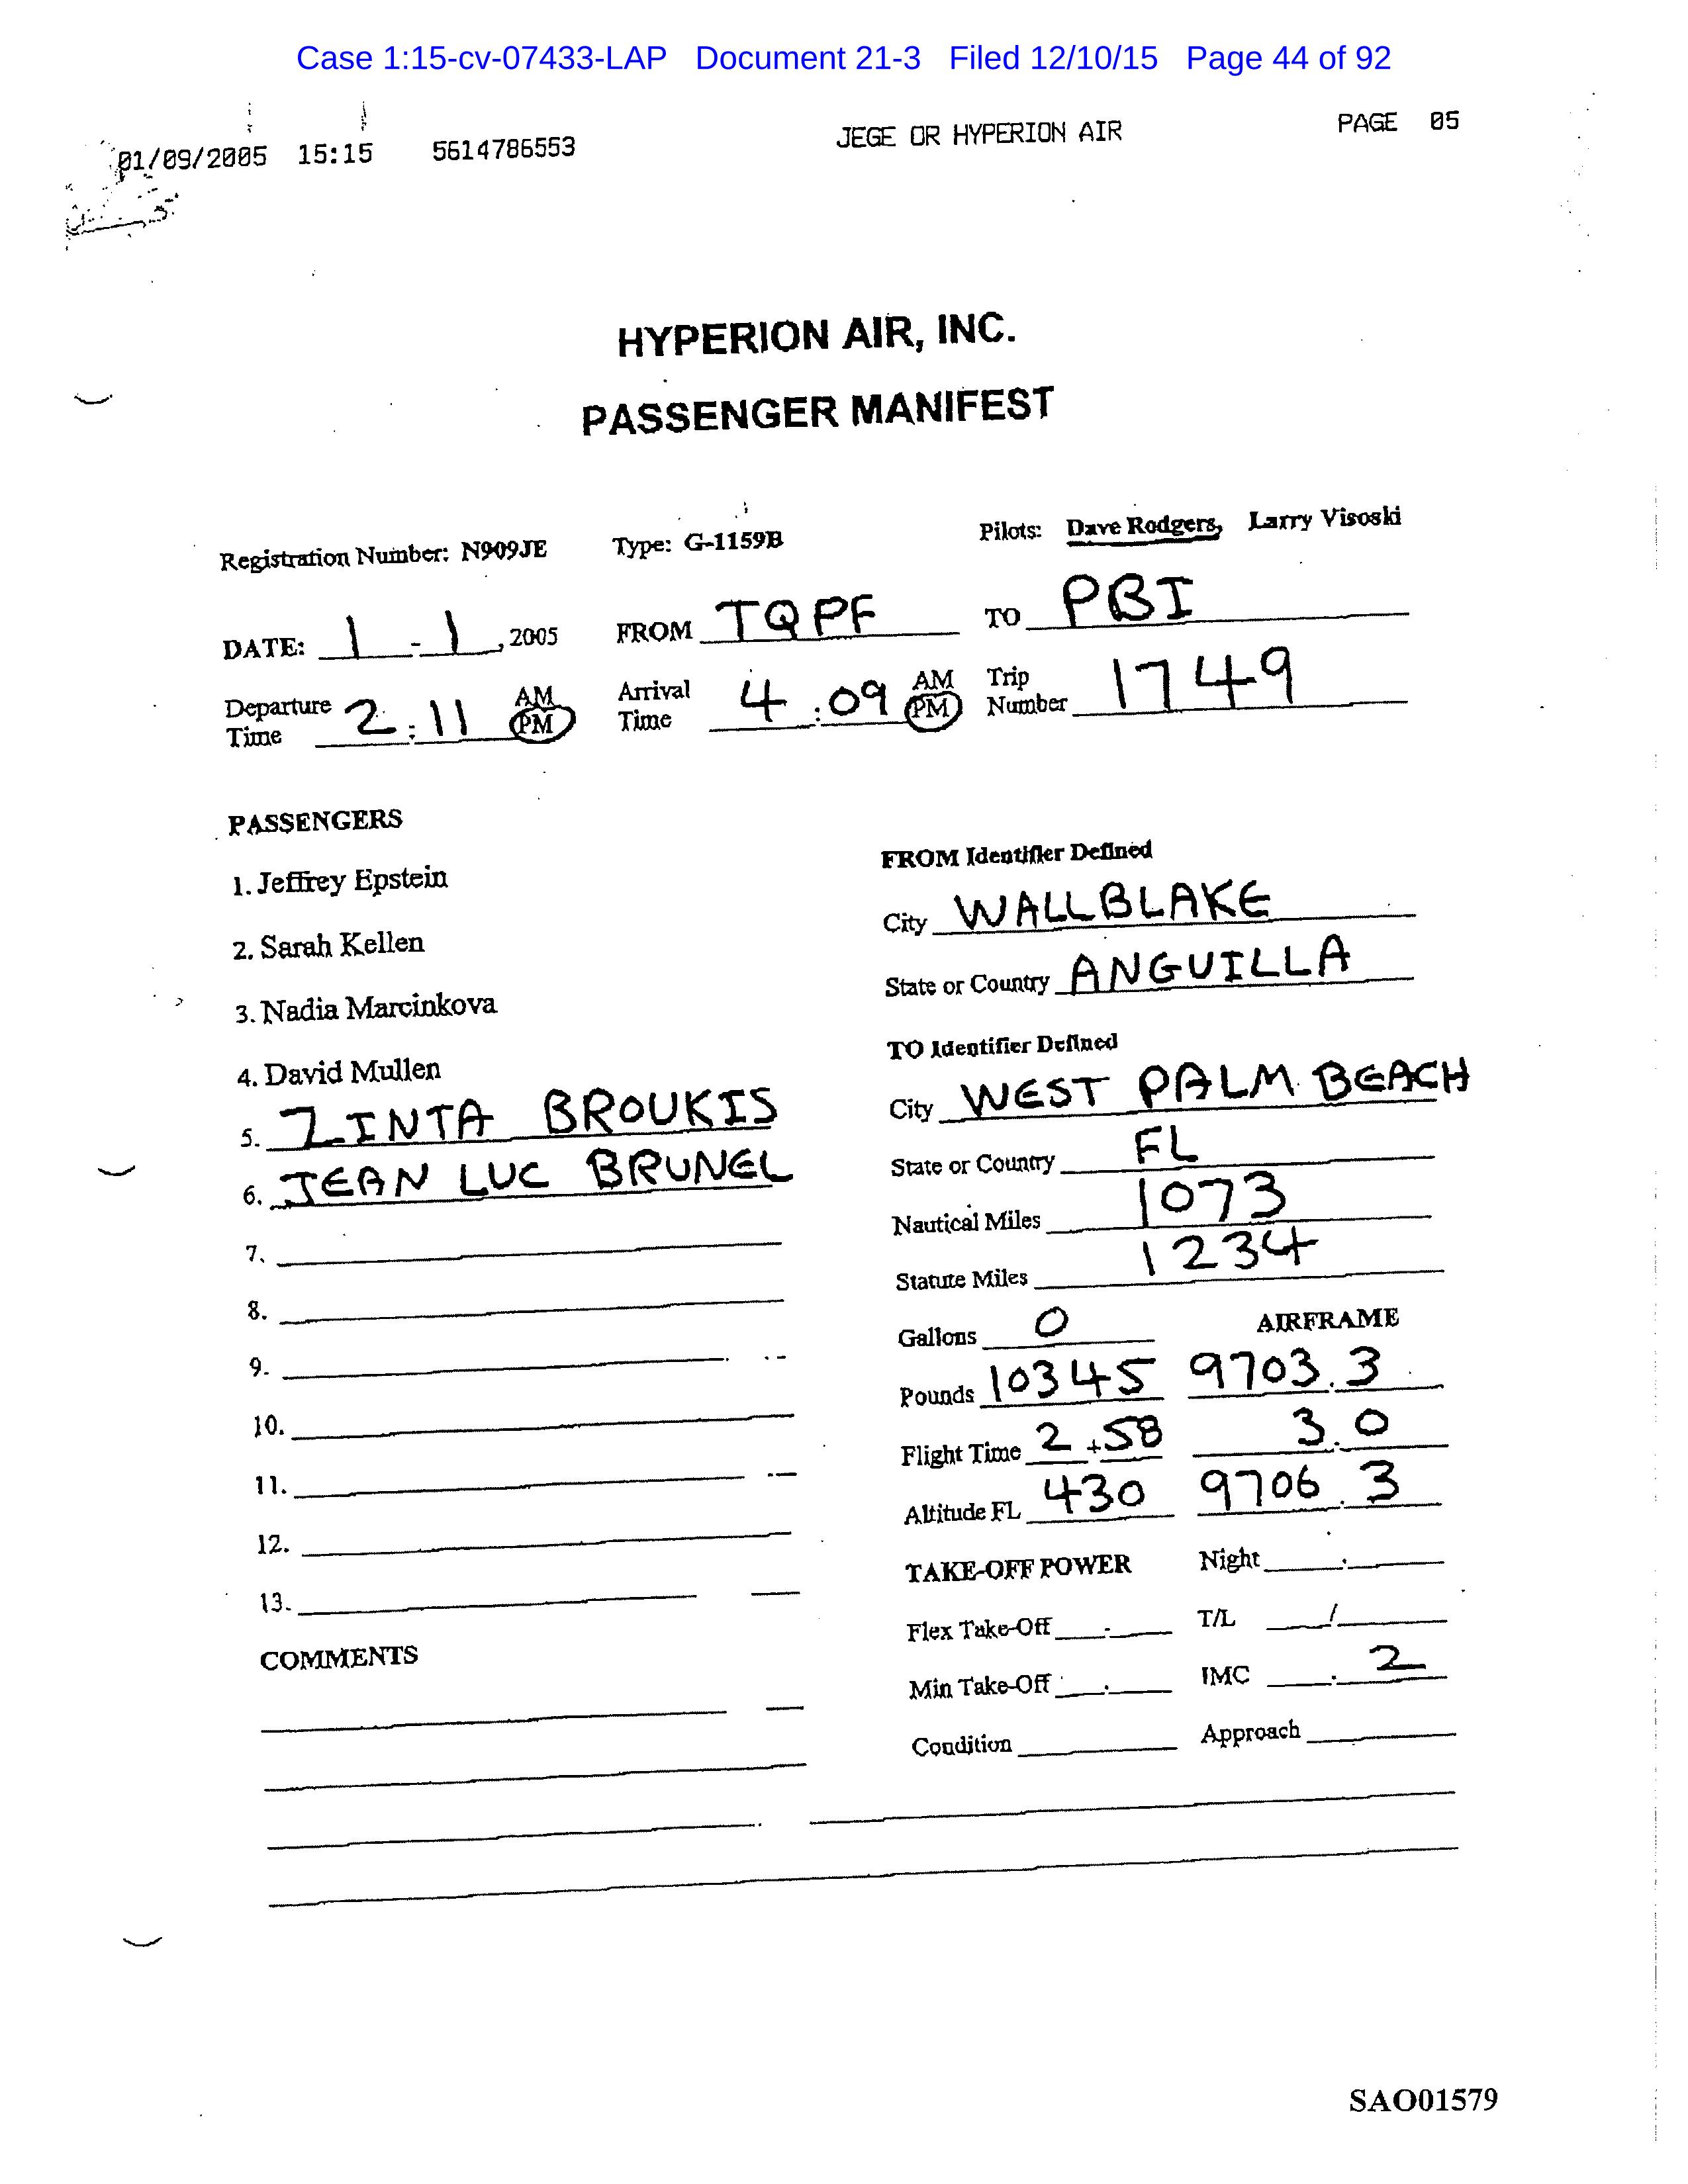 Case 1:15-cv-07433-LAP Document 21-3 Filed 12/10/15 Page 44 of 92
01/09/2005 15:15 5614786553 JEGE OR HYPERION AIR PAGE 05
HYPERION AIR, INC.
PASSENGER MANIFEST
Registration Number: N909JE Type: G-1159B Pilots: Dave Rodgers, Larry Visoski
DATE: 1 - 1, 2005 FROM TQPF TO PBI
Departure Time 2:11 AM PM Arrival Time 4:09 AM PM Trip Number 1749
PASSENGERS
1. Jeffrey Epstein
2. Sarah Kellen
3. Nadia Marcinkova
4. David Mullen
5. ZINTA BROUKIS
6. JEAN LUC BRUNEL
7.
8.
9.
10.
11.
12.
13.
COMMENTS
FROM Identifier Defined
City WALLBLAKE
State or Country ANGUILLA
TO Identifier Defined
City WEST PALM BEACH
State or Country FL
Nautical Miles 1073
Statute Miles 1234
Gallons 0 AIRFRAME
Pounds 10345 9703.3
Flight Time 2+58 3.0
Altitude FL 430 9706.3
TAKE-OFF POWER Night .
Flex Take-Off . T/L /
Min Take-Off . IMC .2
Condition Approach
SAO01579